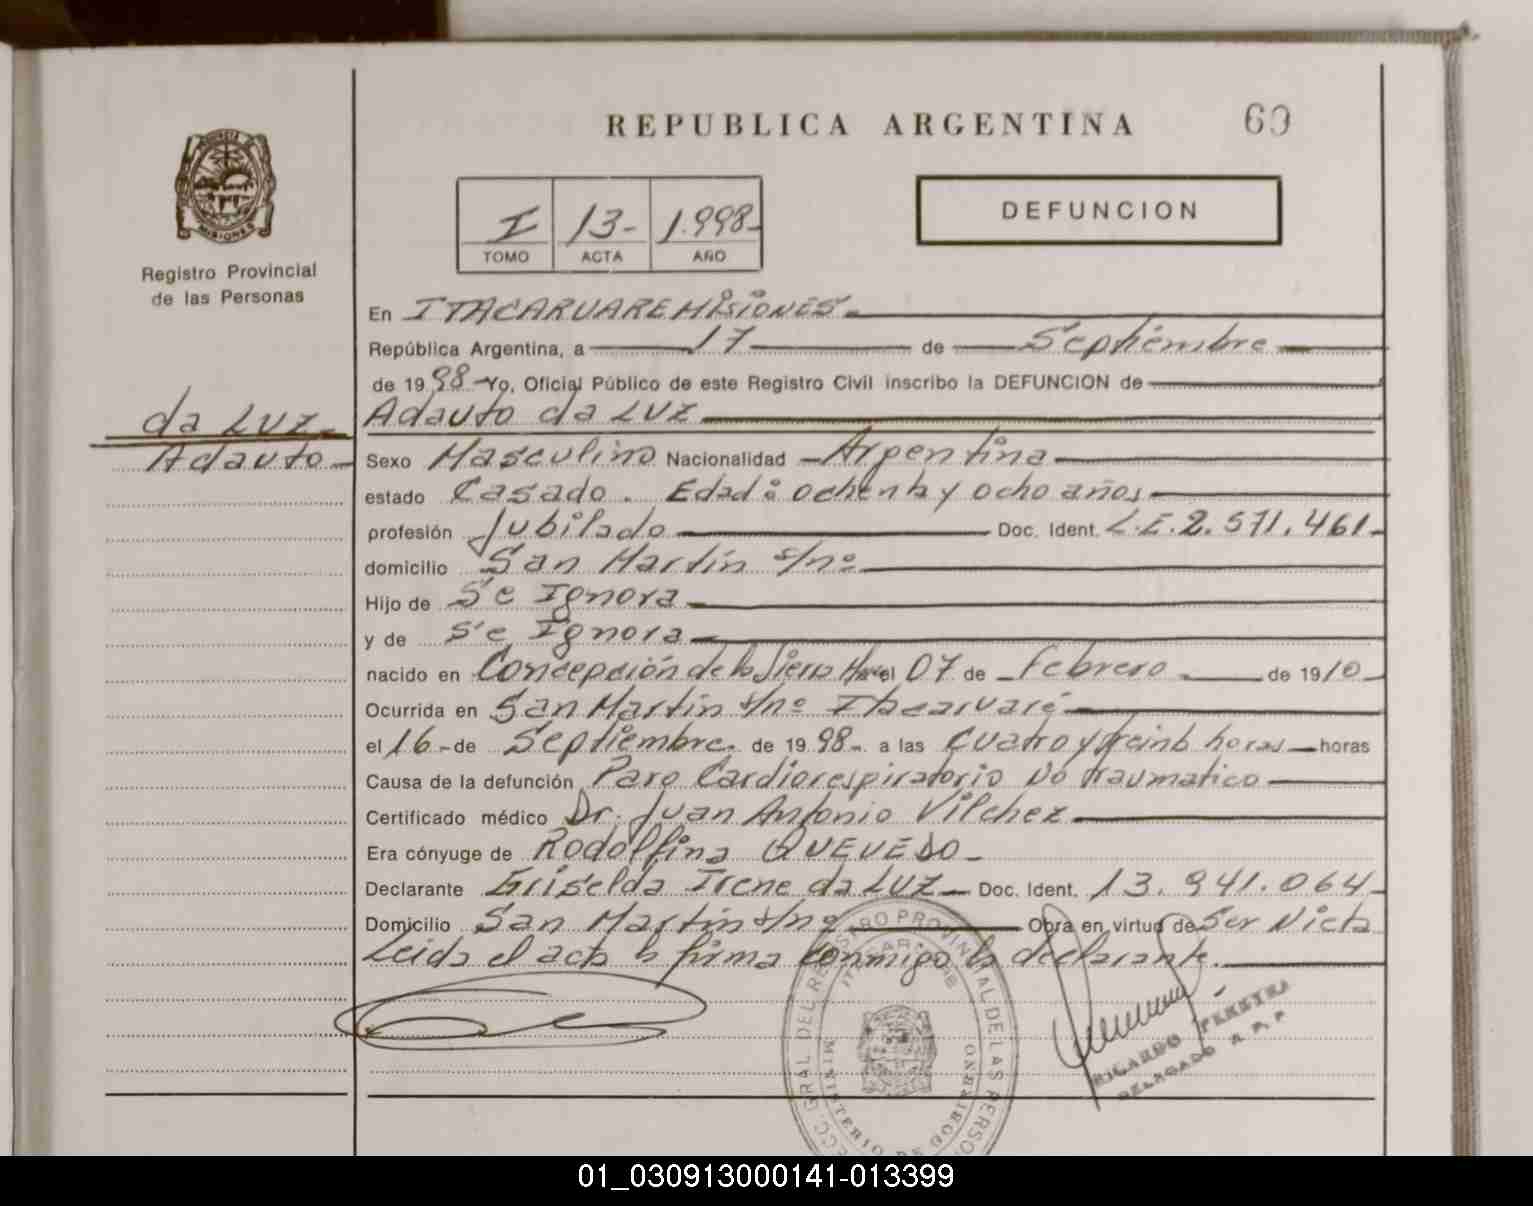 REPUBLICA ARGENTINA
69
MISIONES
Registro Provincial
de las Personas
I 13- 1.998-
TOMO ACTA AÑO
DEFUNCION
En ITACARUARE MISIONES.
República Argentina, a 17 de Septiembre
de 1998- Yo, Oficial Público de este Registro Civil inscribo la DEFUNCION de
da LUZ-
Adauto-
Adauto da LUZ
Sexo Masculino Nacionalidad Argentina
estado Casado. Edad: ochenta y ocho años
profesión Jubilado Doc. Ident. L.E.2.571.461-
domicilio San Martín s/nº
Hijo de Se Ignora
y de Se Ignora
nacido en Concepción de la Sierra el 07 de Febrero de 1910
Ocurrida en San Martín s/nº Itacaruaré
el 16- de Septiembre. de 1998-. a las Cuatro y treinta horas horas
Causa de la defunción Paro Cardiorespiratorio No traumatico
Certificado médico Dr. Juan Antonio Vilchez
Era cónyuge de Rodolfina QUEVEDO-
Declarante Griselda Irene da LUZ Doc. Ident. 13.941.064-
Domicilio San Martín s/nº Obra en virtud de Ser Nieta
Leida el acta la firma conmigo la declarante.
RICARDO PEREYRA
DELEGADO R. P. P.
GRAL DEL REGISTRO PROVINCIAL DE LAS PERSO
MINISTERIO DE GOBIERNO
01_030913000141-013399